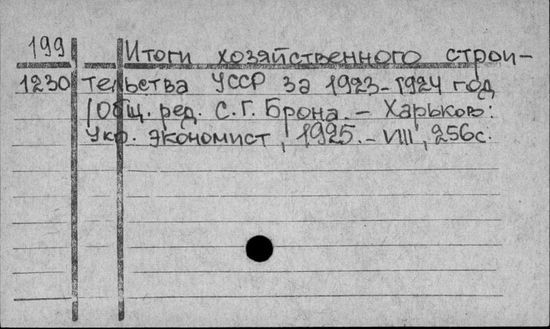 199 Итоги хозяйственного строи-
1230 тельства УССР за 1923-1924 год
/Общ. ред. С.Г. Брона. – Харьков:
Укр. экономист, 1925. – VIII, 256с.